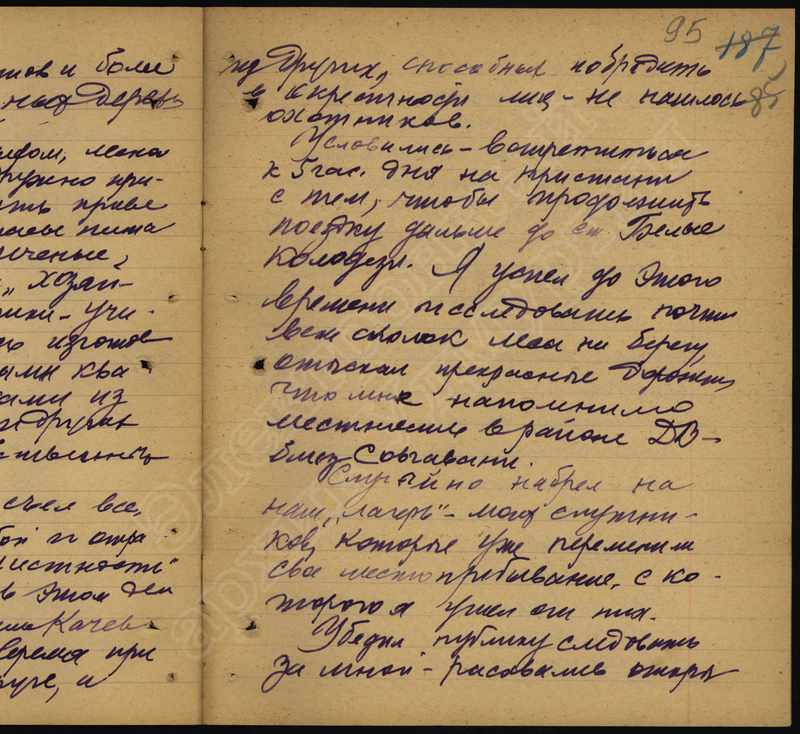 95 187
85
тов и боле
ных дерев
мфом, лежа
нужно при-
сть приве
ченые,
„хозяй-
ники - учи-
ами ква
ами из
подручн
ственный
съел все,
бой и отпра
местность"
в этом дел
Качев
время при
руче, а
жд других, способных побродить
в окрестности лиц - не нашлось
охотников.
Условились - встретиться
к 5 час. дня на пристани
с тем, чтобы продолжить
поездку дальше до ст. Белые
Колодези. Я успел до этого
времени исследовать почти
весь околок леса на берегу,
отыскал прекрасные дорожки,
что мне напомнило
местность в районе ДВ -
близ Совгавани.
Случайно набрел на
наш „лагерь" - моих спутни-
ков, которые уже переменили
свое местопребывание, с ко-
торого я ушел от них.
Убедил публику следовать
за мной - расстались